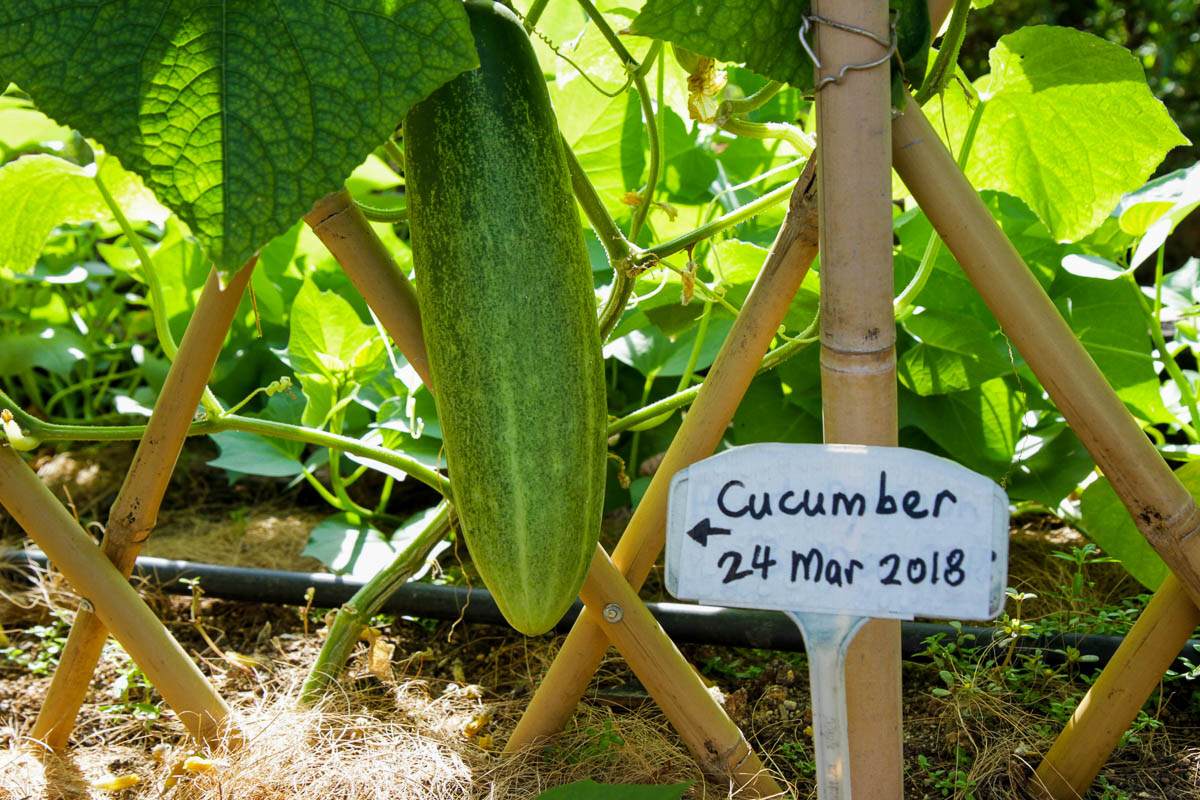 Cucumber
24 Mar 2018